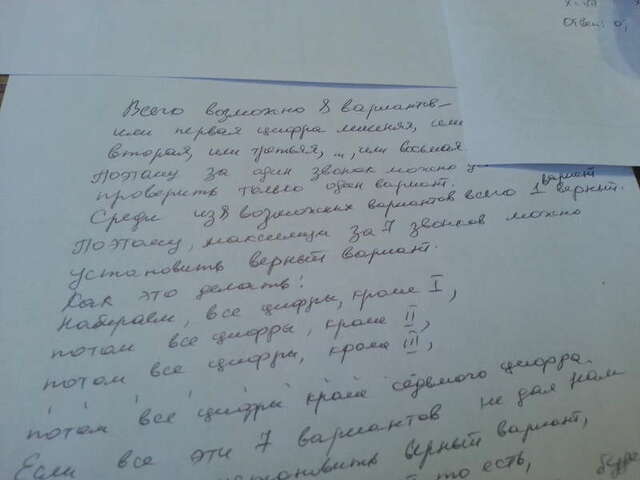 Ответ: 0,
Всего возможно 8 вариантов –
или первая цифра лишняя, или
вторая, или третья, ..., или восьмая
Поэтому за один звонок можно
проверить только один вариант.
Среди из 8 возможных вариантов всего 1 вариант верный.
Поэтому, максимум за 7 звонков можно
установить верный вариант.
Как это делать:
Набираем, все цифры, кроме I,
потом все цифры, кроме II,
потом все цифры, кроме III,
потом все цифры кроме седьмого цифра.
Если все эти 7 вариантов не дал нам
установить верный вариант,
то есть, буде